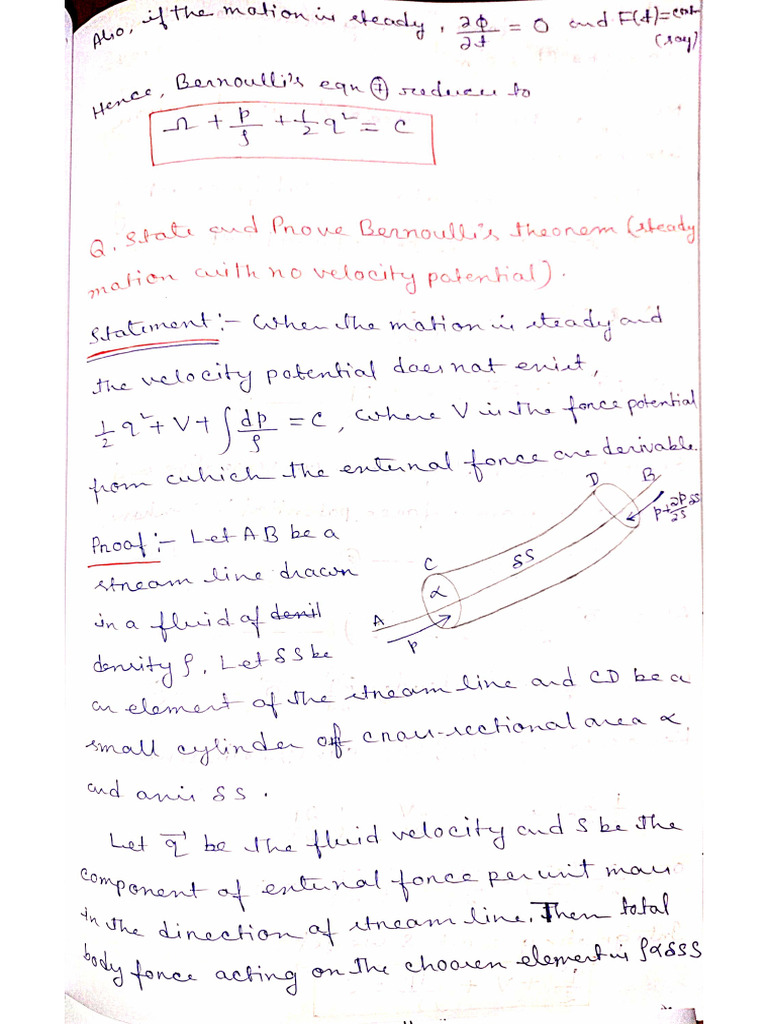 Also, if the motion is steady, ∂φ/∂t = 0 and F(t)=cont (say)
Hence, Bernoulli's eqn ⑦ reduces to
Ω + p/ρ + 1/2 q² = C
Q. State and Prove Bernoulli's theorem (steady
motion with no velocity potential).
Statement:- When the motion is steady and
the velocity potential does not exist,
1/2 q² + V + ∫ dp/ρ = C, where V is the force potential
from which the external force are derivable.
Proof:- Let AB be a
stream line drawn
in a fluid of
density ρ. Let δS be
an element of the stream line and CD be a
small cylinder of cross-sectional area α
and axis δS.
Let q⃗ be the fluid velocity and S be the
component of external force per unit mass
in the direction of stream line. Then total
body force acting on the choosen element is ραδSS
D B
p+∂p/∂S δS
C
δS
α
A
p